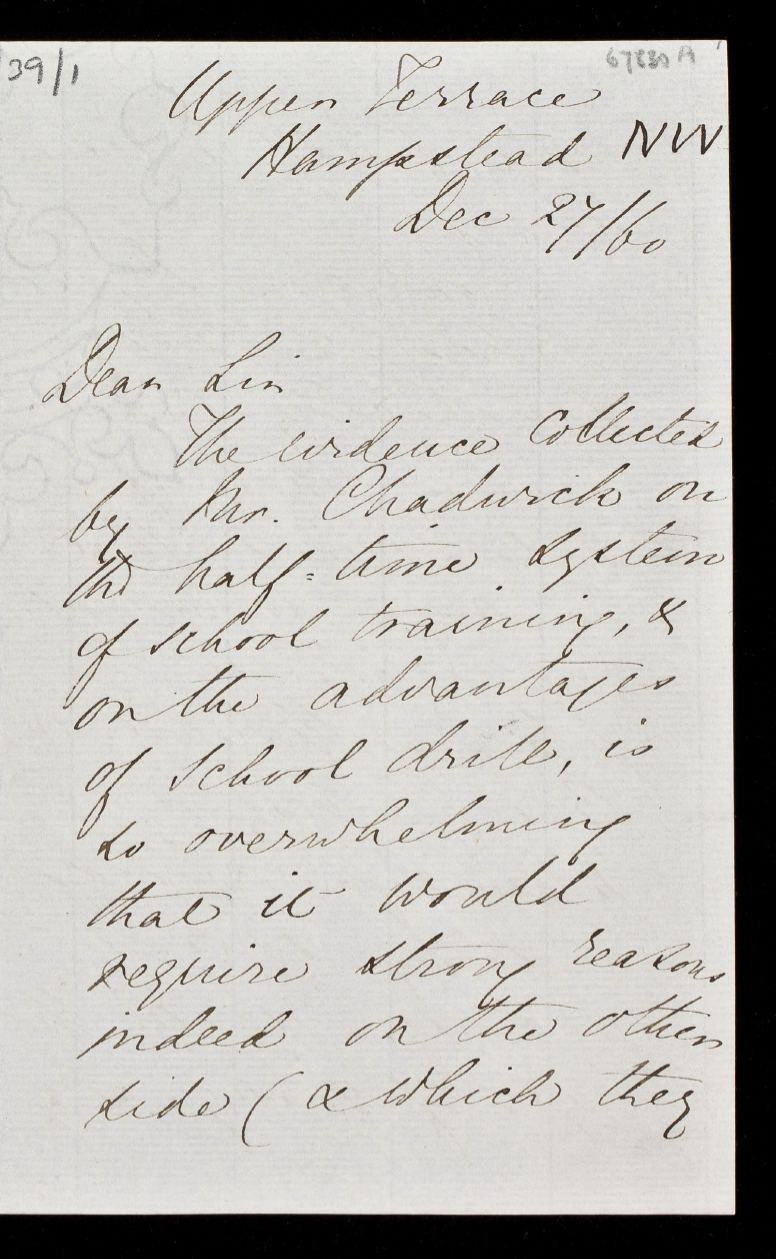 39/1
67830 A
Upper Terrace
Hampstead NW
Dec 27/60
Dear Sir
The evidence collected
by Mr. Chadwick on
the half=time system
of school training, &
on the advantages
of school drill, is
so overwhelming
that it would
require strong reasons
indeed on the other
side (& which they